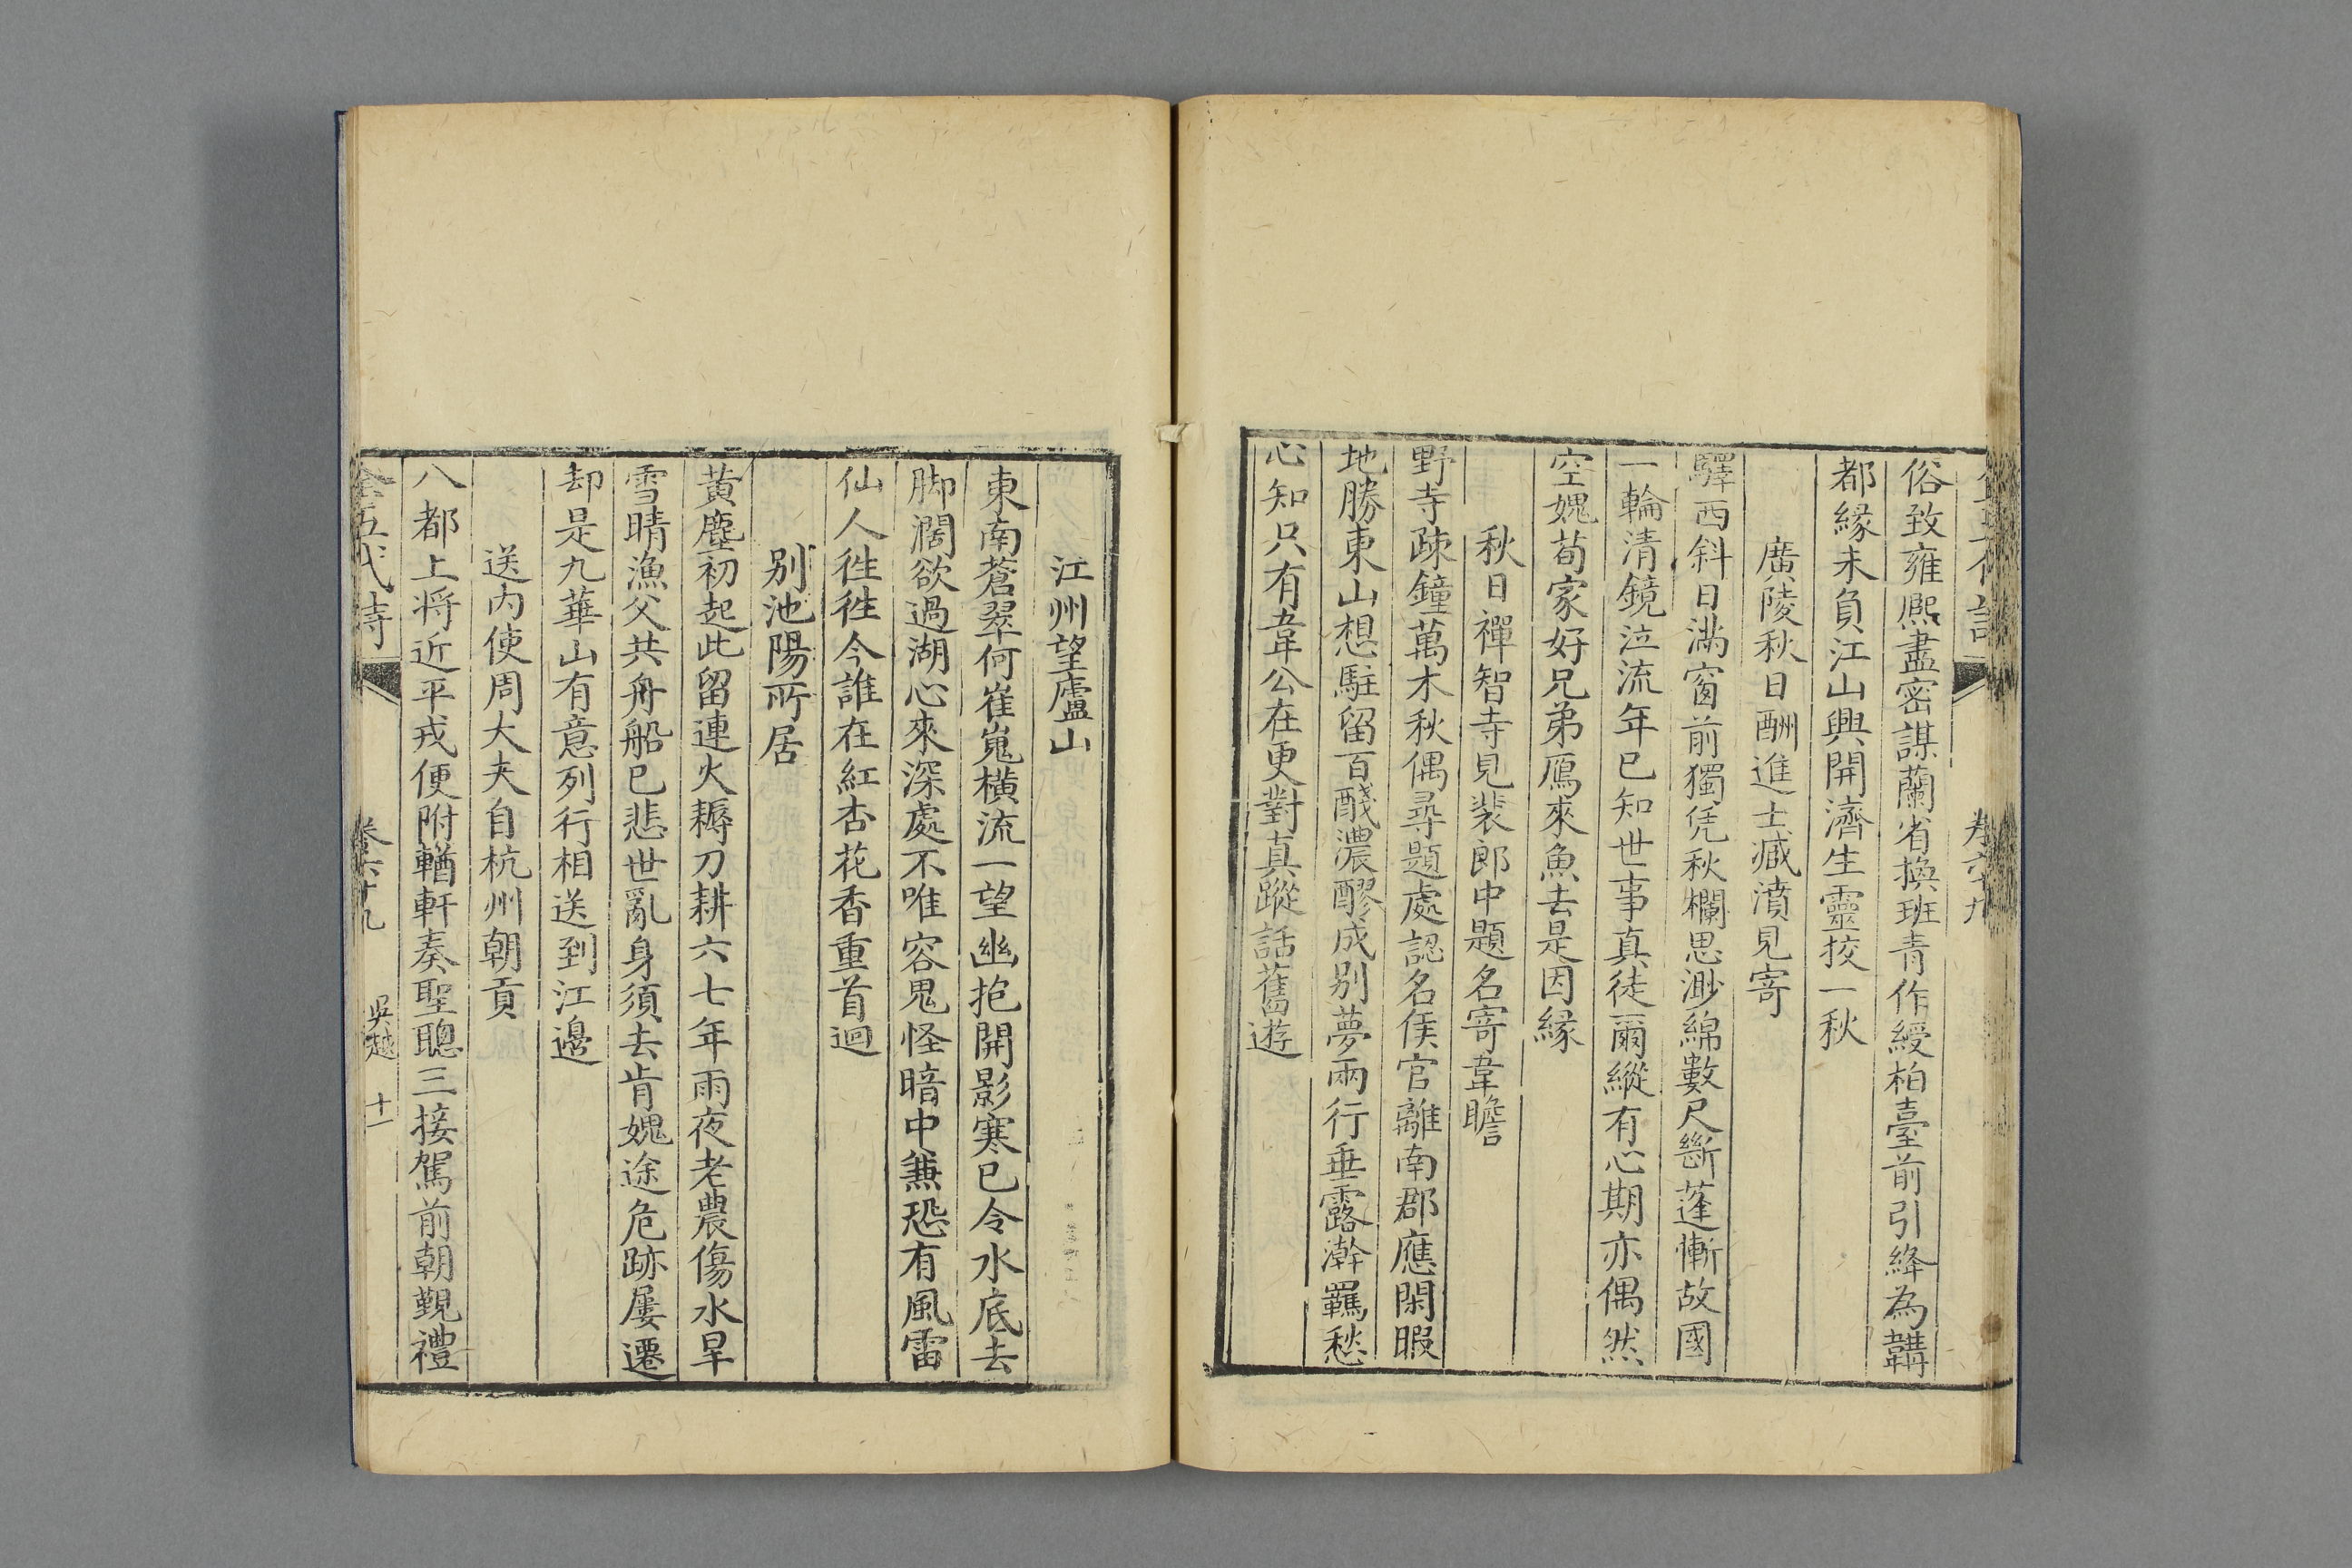 俗致雍熈盡密謀蘭省換班青作綬柏臺前引絳為韝
都緣未負江山興開濟生靈挍一秋
廣陵秋日酬進士臧濆見寄
驛西斜日滿窗前獨凭秋欄思渺綿數尺斷蓬慚故國
一輪清鏡泣流年已知世事真徒爾縱有心期亦偶然
空媿荀家好兄弟鴈來魚去是因緣
秋日禪智寺見裴郎中題名寄韋瞻
野寺疎鐘萬木秋偶尋題處認名侯官離南郡應閑暇
地勝東山想駐留百醆濃醪成别夢兩行垂露澣羈愁
心知只有韋公在更對真蹤話舊遊
江州望廬山
東南蒼翠何崔嵬橫流一望幽抱開影寒已令水底去
脚濶欲過湖心來深處不唯容鬼怪暗中兼恐有風雷
仙人徃徃今誰在紅杏花香重首迴
别池陽所居
黃塵初起此留連火耨刀耕六七年雨夜老農傷水旱
雪晴漁父共舟船已悲世亂身須去肯媿途危跡屢遷
却是九華山有意列行相送到江邊
送內使周大夫自杭州朝貢
八都上將近平戎便附輶軒奏聖聰三接駕前朝覲禮
全五代詩 卷六十九 吳越 十一